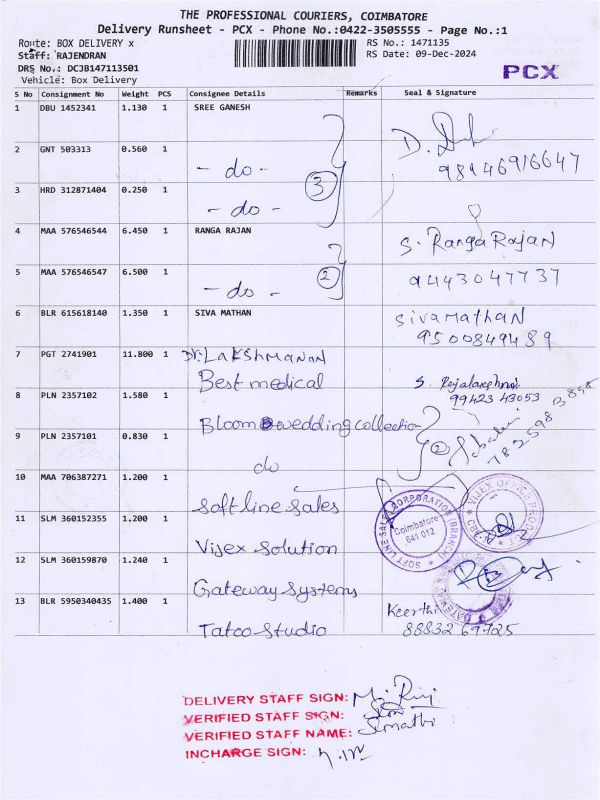 THE PROFESSIONAL COURIERS, COIMBATORE
Delivery Runsheet - PCX - Phone No.:0422-3505555 - Page No.:1
Route: BOX DELIVERY x
RS No.: 1471135
Staff: RAJENDRAN
RS Date: 09-Dec-2024
DRS No.: DCJB147113501
Vehicle: Box Delivery
PCX
S No Consignment No Weight PCS Consignee Details Remarks Seal & Signature
1 DBU 1452341 1.130 1 SREE GANESH
98946916647
2 GNT 503313 0.560 1 - do -
3
3 HRD 312871404 0.250 1 - do -
4 MAA 576546544 6.450 1 RANGA RAJAN S. Ranga Rajan
2
5 MAA 576546547 6.500 1 - do - 9443047737
6 BLR 615618140 1.350 1 SIVA MATHAN sivamathan
9500849489
7 PGT 2741901 11.800 1 Dr. Lakshmanan
Best medical
99423 43053
8 PLN 2357102 1.580 1 Bloom wedding collection
2
9 PLN 2357101 0.830 1 do
10 MAA 706387271 1.200 1 Soft line Sales
SOFT LINE SALES CORPORATION (BRANCH)
Coimbatore-
641 012
VIJEX OFFICE PRODUCT
11 SLM 360152355 1.200 1 Vijex Solution
12 SLM 360159870 1.240 1 Gateway Systems
GATEWAY
13 BLR 5950340435 1.400 1 Tatoo Studio
Keerthi
88832 69725
DELIVERY STAFF SIGN:
VERIFIED STAFF SIGN:
VERIFIED STAFF NAME: Sumathi
INCHARGE SIGN: